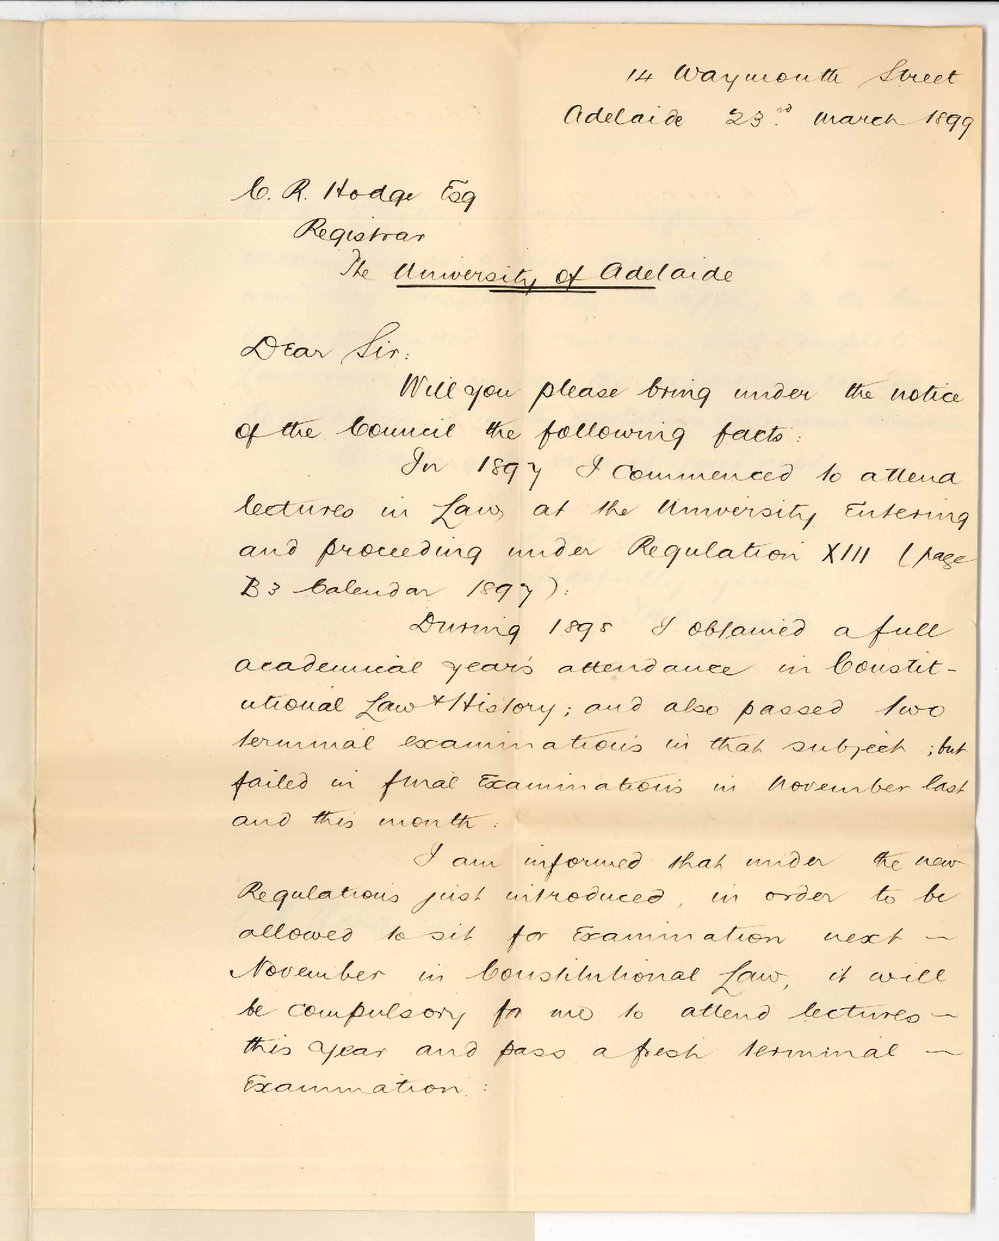 14 Waymouth Street
Adelaide 23rd. March 1899
C. R. Hodge Esq
Registrar
The University of Adelaide
Dear Sir:
Will you please bring under the notice
of the Council the following facts:
In 1897 I commenced to attend
lectures in Law, at the University Entering
and proceeding under Regulation XIII (page
B3 Calendar 1897):
During 1898 I obtained a full
academical year's attendance in Constit-
utional Law & History; and also passed two
terminal examinations in that subject; but
failed in final Examinations in November last
and this month:
I am informed that under the new
Regulations just introduced, in order to be
allowed to sit for Examination next —
November in Constitutional Law, it will
be compulsory for me to attend lectures —
this year and pass a fresh terminal —
Examination: